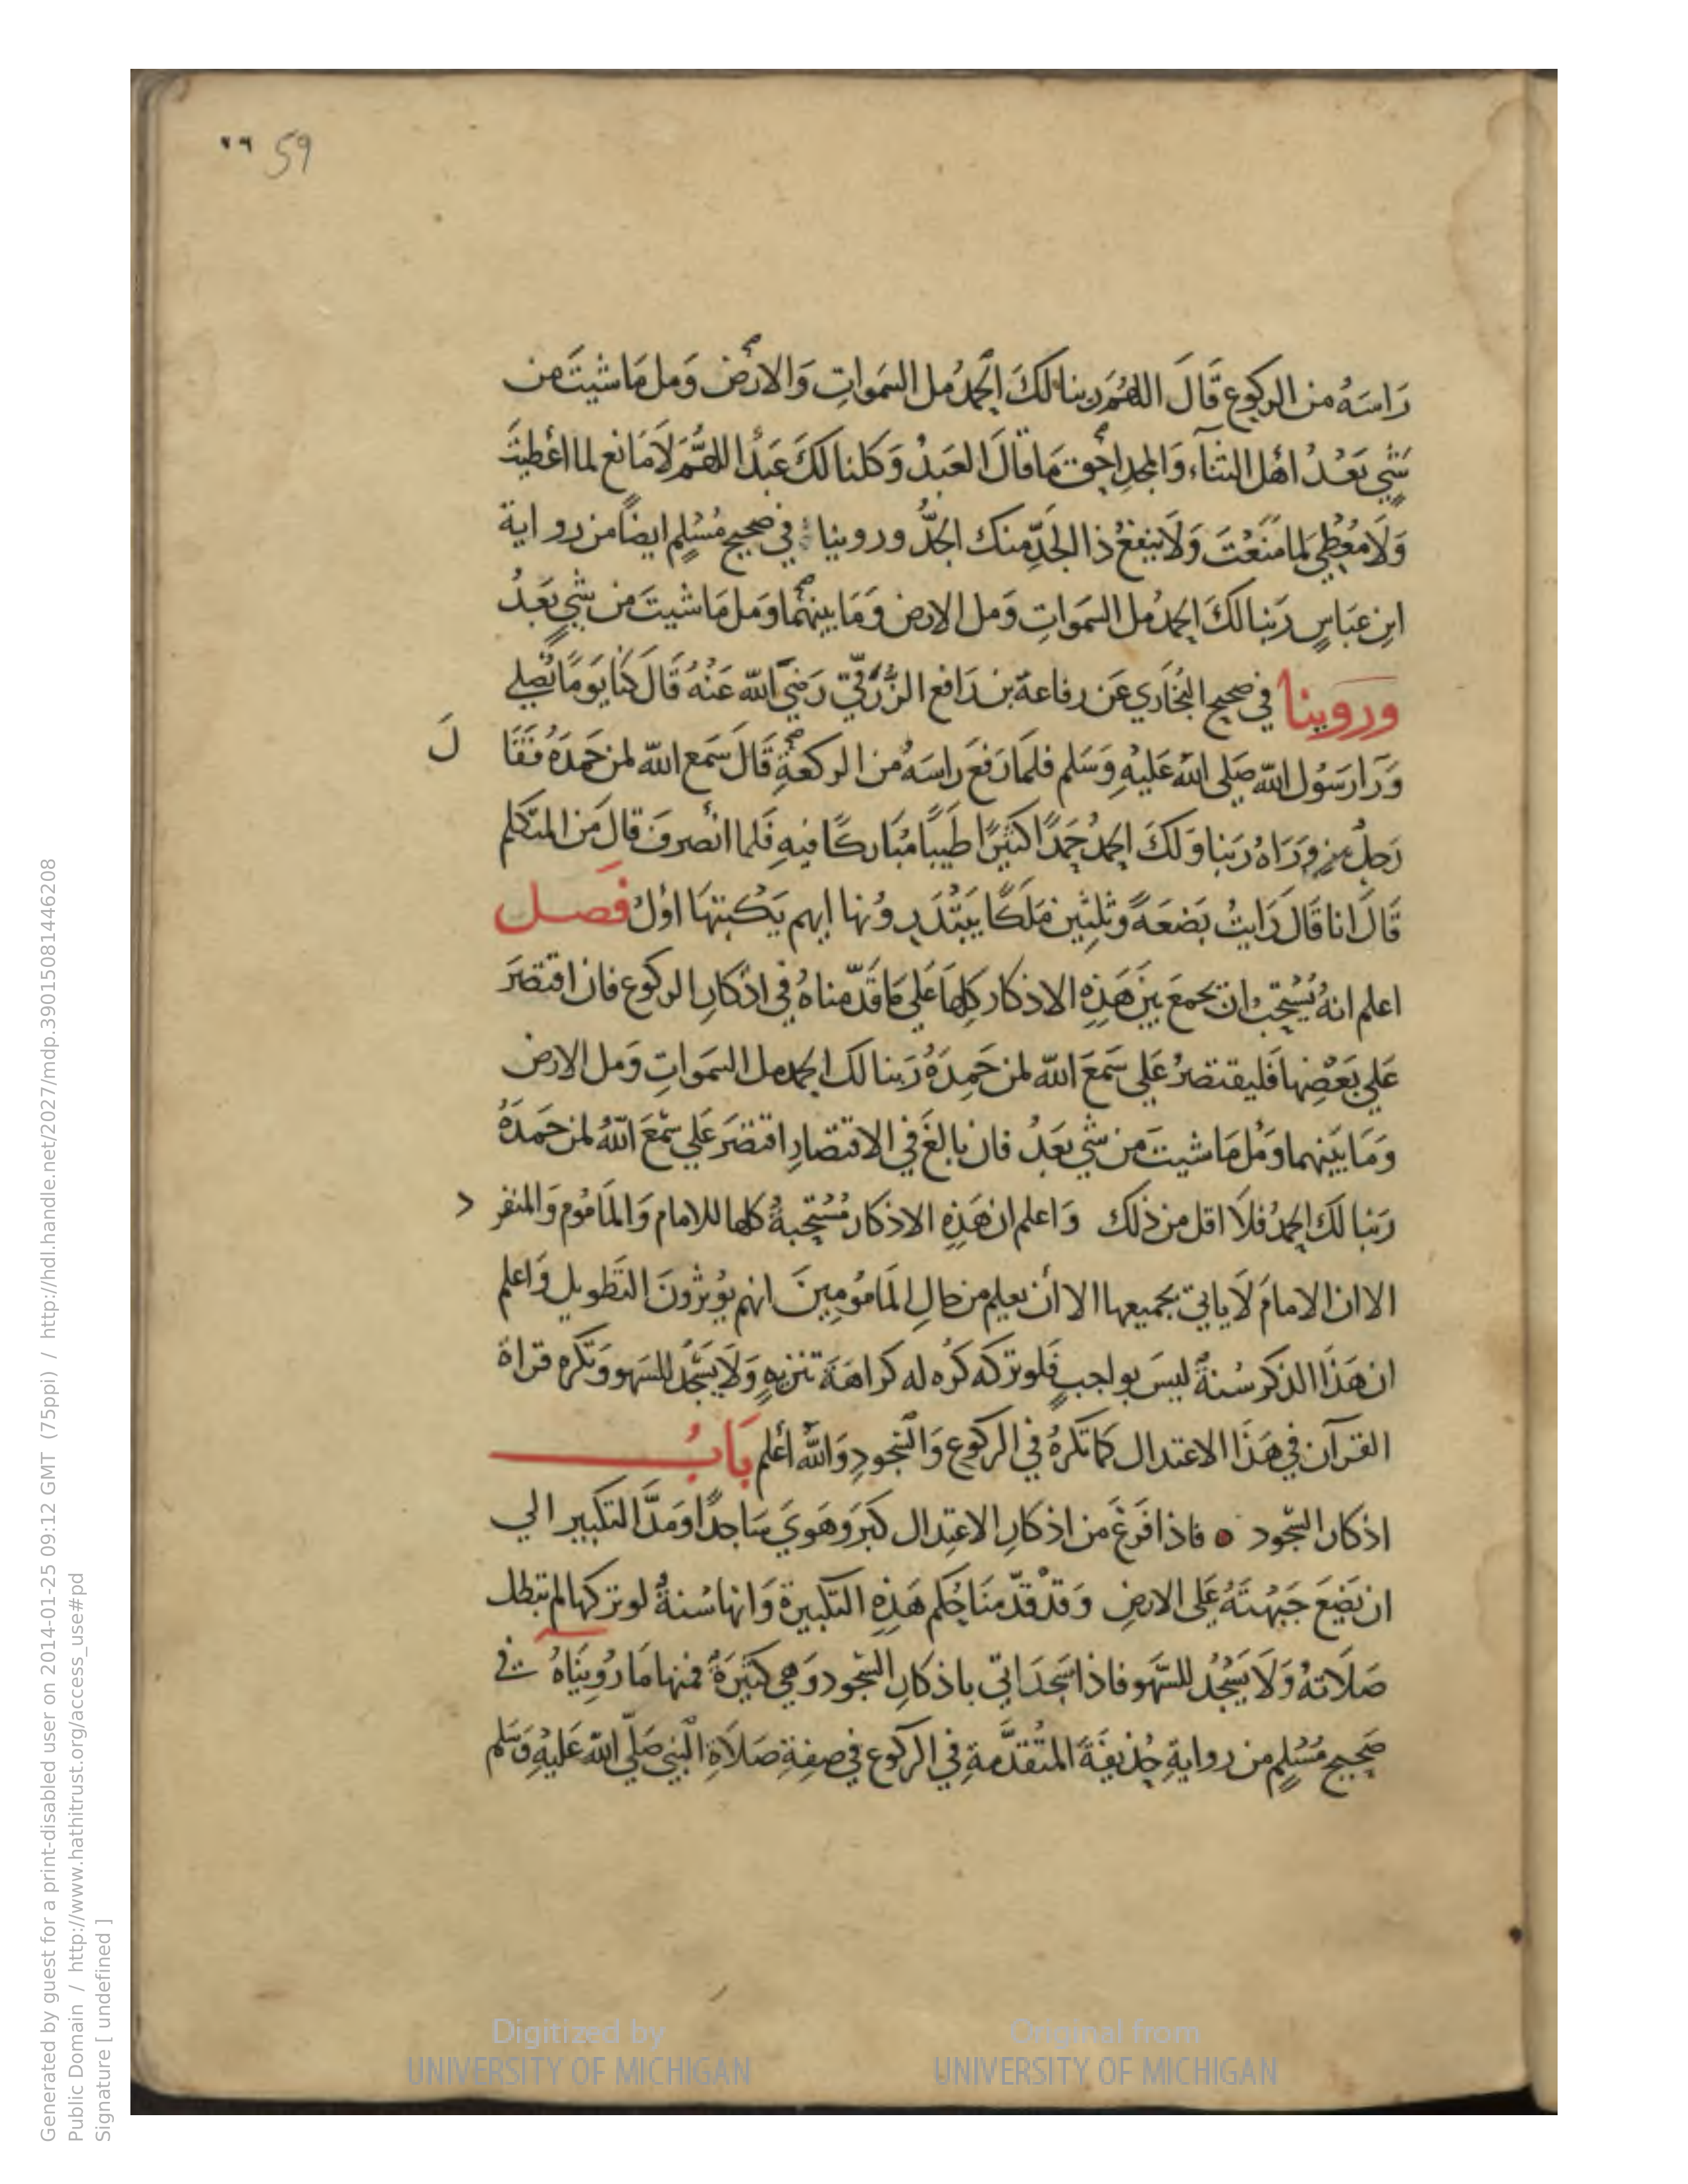 ٢٦ 59
رَاسَهُ من الركوع قَالَ اللهُمَّ ربنا لكَ الحمدُ مل السَموَاتِ وَالارْض وَمل مَا شيتَ من
شَيٍ بَعْدُ اهْل الثناءِ وَالمجدِ احَق مَا قالَ العَبدُ وَكلنا لكَ عَبدٌ اللهُمَّ لَا مَانع لما اعْطيتَ
وَلَا مُعْطِي لما مَنَعْتَ وَلَا ينفعُ ذا الجَدِّ منك الجَدُّ وروينا في صحيح مُسْلِم ايضاً من رواية
ابنِ عبَاسٍ رَبنا لكَ الحمدُ مل السَموَاتِ وَمل الارض وَمَا بينهُما وَمل مَا شيتَ من شَيٍ بَعْدُ
وروينا في صحيح البُخَاري عَن رفاعة بن رَافع الزُرَقيّ رَضيَ الله عَنْهُ قَالَ كنا يَومًا نُصلي
وَرَا رَسُول الله صَلى اللهُ عَليْهِ وَسَلم فلمَا رَفعَ رَاسَهُ من الركعَةِ قَالَ سَمع الله لمن حَمدَهُ فَقَا لَ
رَجلٌ من وَرَاهُ رَبنا وَلكَ الحمدُ حَمدًا كثيرًا طَيبًا مُبَاركًا فيهِ فَلما انْصرفَ قالَ مَن المتكلم
قَالَ انا قَالَ رَايتُ بَضعَةً وَثلثين مَلكًا يَبْتَدرونها ايهم يَكتبهَا اوّلُ فَصل
اعلم انهُ يُسْتحَبُ ان يجمعَ بين هَذِهِ الاذكار كلهَا عَلي مَا قَدّمناهُ في اذكارِ الركوع فان اقتصَرَ
عَلي بَعْضِها فَليقتصرْ عَلي سَمعَ الله لمن حَمِدَهُ رَبنا لك الحمد مل السَموَاتِ وَمل الارض
وَمَا بَيْنهما وَمل مَا شيتَ من شَيٍ بَعدُ فان بالغَ في الاقتصَارِ اقتصَرَ عَلي سَمعَ اللهُ لمن حَمدَهُ
رَبنا لك الحمدُ فلَا اقل من ذلك وَاعلم ان هَذِهِ الاذكار مُسْتحَبةٌ كلها للامام وَالمَامُوم وَالمنفر د
الا ان الامامَ لَا ياتي بجميعها الا انْ يعلم من حَالِ المَامُومِينَ انهم يُوثرُونَ التَطويل وَاعلم
ان هَذَا الذكر سُنةٌ ليسَ بواجبٍ فَلو تركه كُره له كراهَةَ تنزيهٍ وَلَا يَسْجُدُ للسَهو وَتكره قراة
القرآن في هَذَا الاعتدال كمَا تكرهُ في الركوع وَالسُجودِ وَاللهُ أعْلم بَابُ
اذكار السّجود فاذا فَرغَ من اذكارِ الاعتِدال كبَر وَهَويَ سَاجدًا وَمَدَّ التكبير الي
ان يَضَعَ جَبْهتَهُ عَلى الارضِ وَقدْ قدّمنَا حُكم هَذِهِ التكبيرة وَانها سُنةٌ لو تركها لم تبطل
صَلَاتهُ وَلَا يَسْجُدُ للسَّهو فاذا سَجَدَ اتي باذكارِ السّجود وَهي كثيرَةٌ فمنها مَا رُوينَاهُ في
صَحيح مُسْلم من روايةِ حُذيفَةَ المتقدّمةِ في الركوع في صفةِ صَلَاةِ النبي صَلّي الله عَليْهِ وَسَلم
Digitized by
UNIVERSITY OF MICHIGAN
Original from
UNIVERSITY OF MICHIGAN
Generated by guest for a print-disabled user on 2014-01-25 09:12 GMT (75ppi) / http://hdl.handle.net/2027/mdp.39015081446208
Public Domain / http://www.hathitrust.org/access_use#pd
Signature [ undefined ]